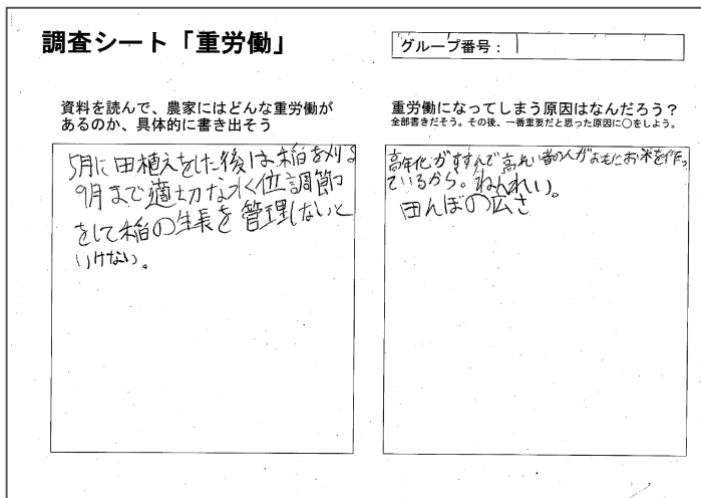 調査シート「重労働」
グループ番号：
資料を読んで、農家にはどんな重労働が
あるのか、具体的に書き出そう
5月に田植えをした後は稲を刈る
9月まで適切な水位調節
をして稲の生長を管理しないと
いけない。
重労働になってしまう原因はなんだろう？
全部書きだそう。その後、一番重要だと思った原因に○をしよう。
高年化がすすんで高れい者の人がおもにお米を作っ
ているから。ねんれい。
田んぼの広さ